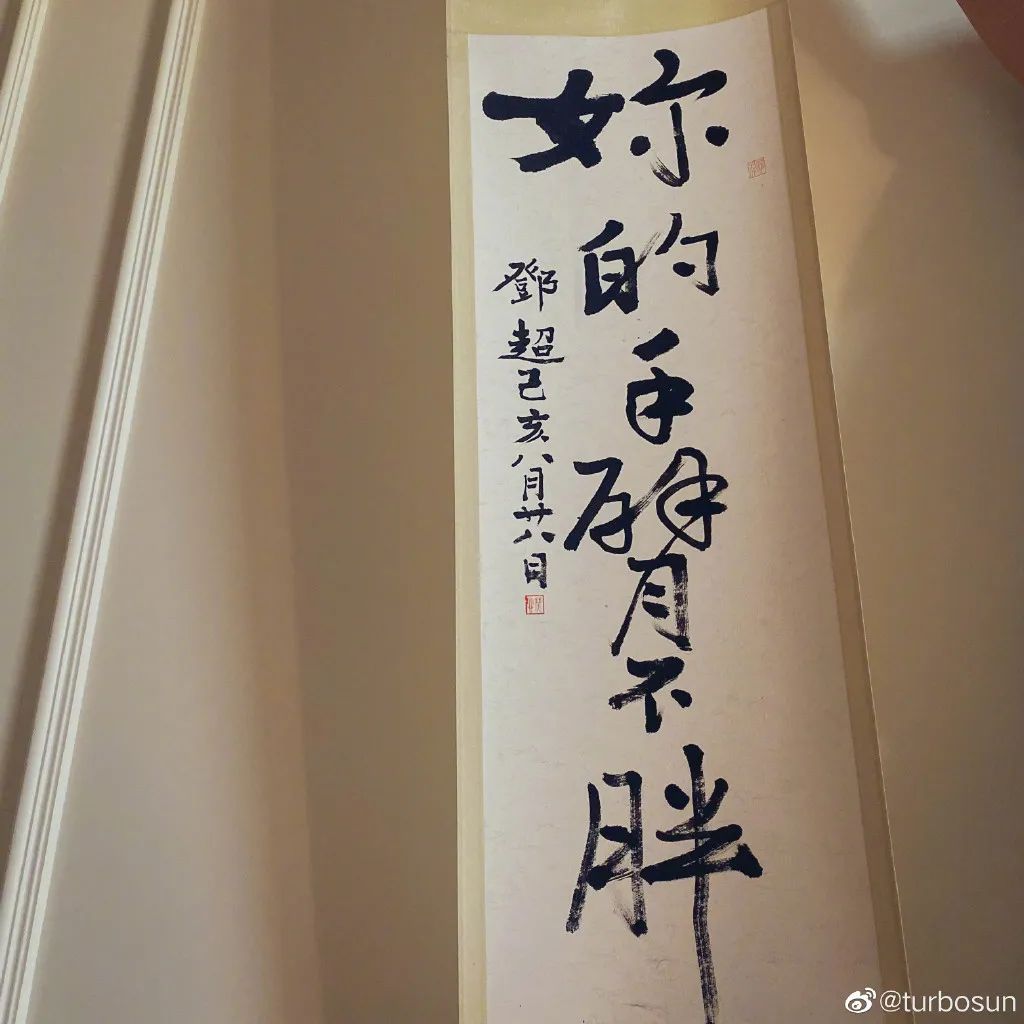 妳的手臂不胖
鄧超己亥八月廿八日
@turbosun